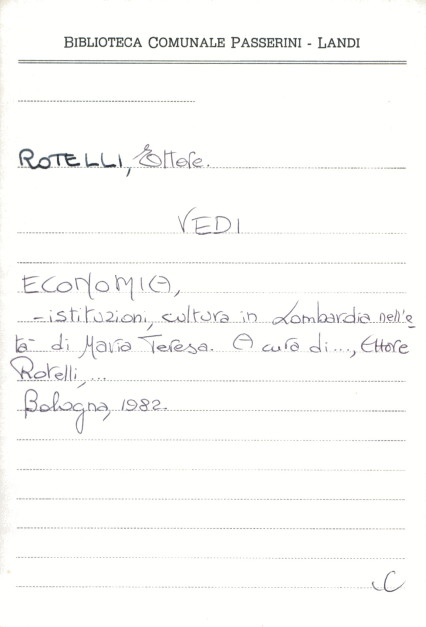 BIBLIOTECA COMUNALE PASSERINI - LANDI
ROTELLI, Ettore.
VEDI
ECONOMIA,
- istituzioni, cultura in Lombardia nell'e
tà di Maria Teresa. A cura di..., Ettore
Rotelli,...
Bologna, 1982.
C